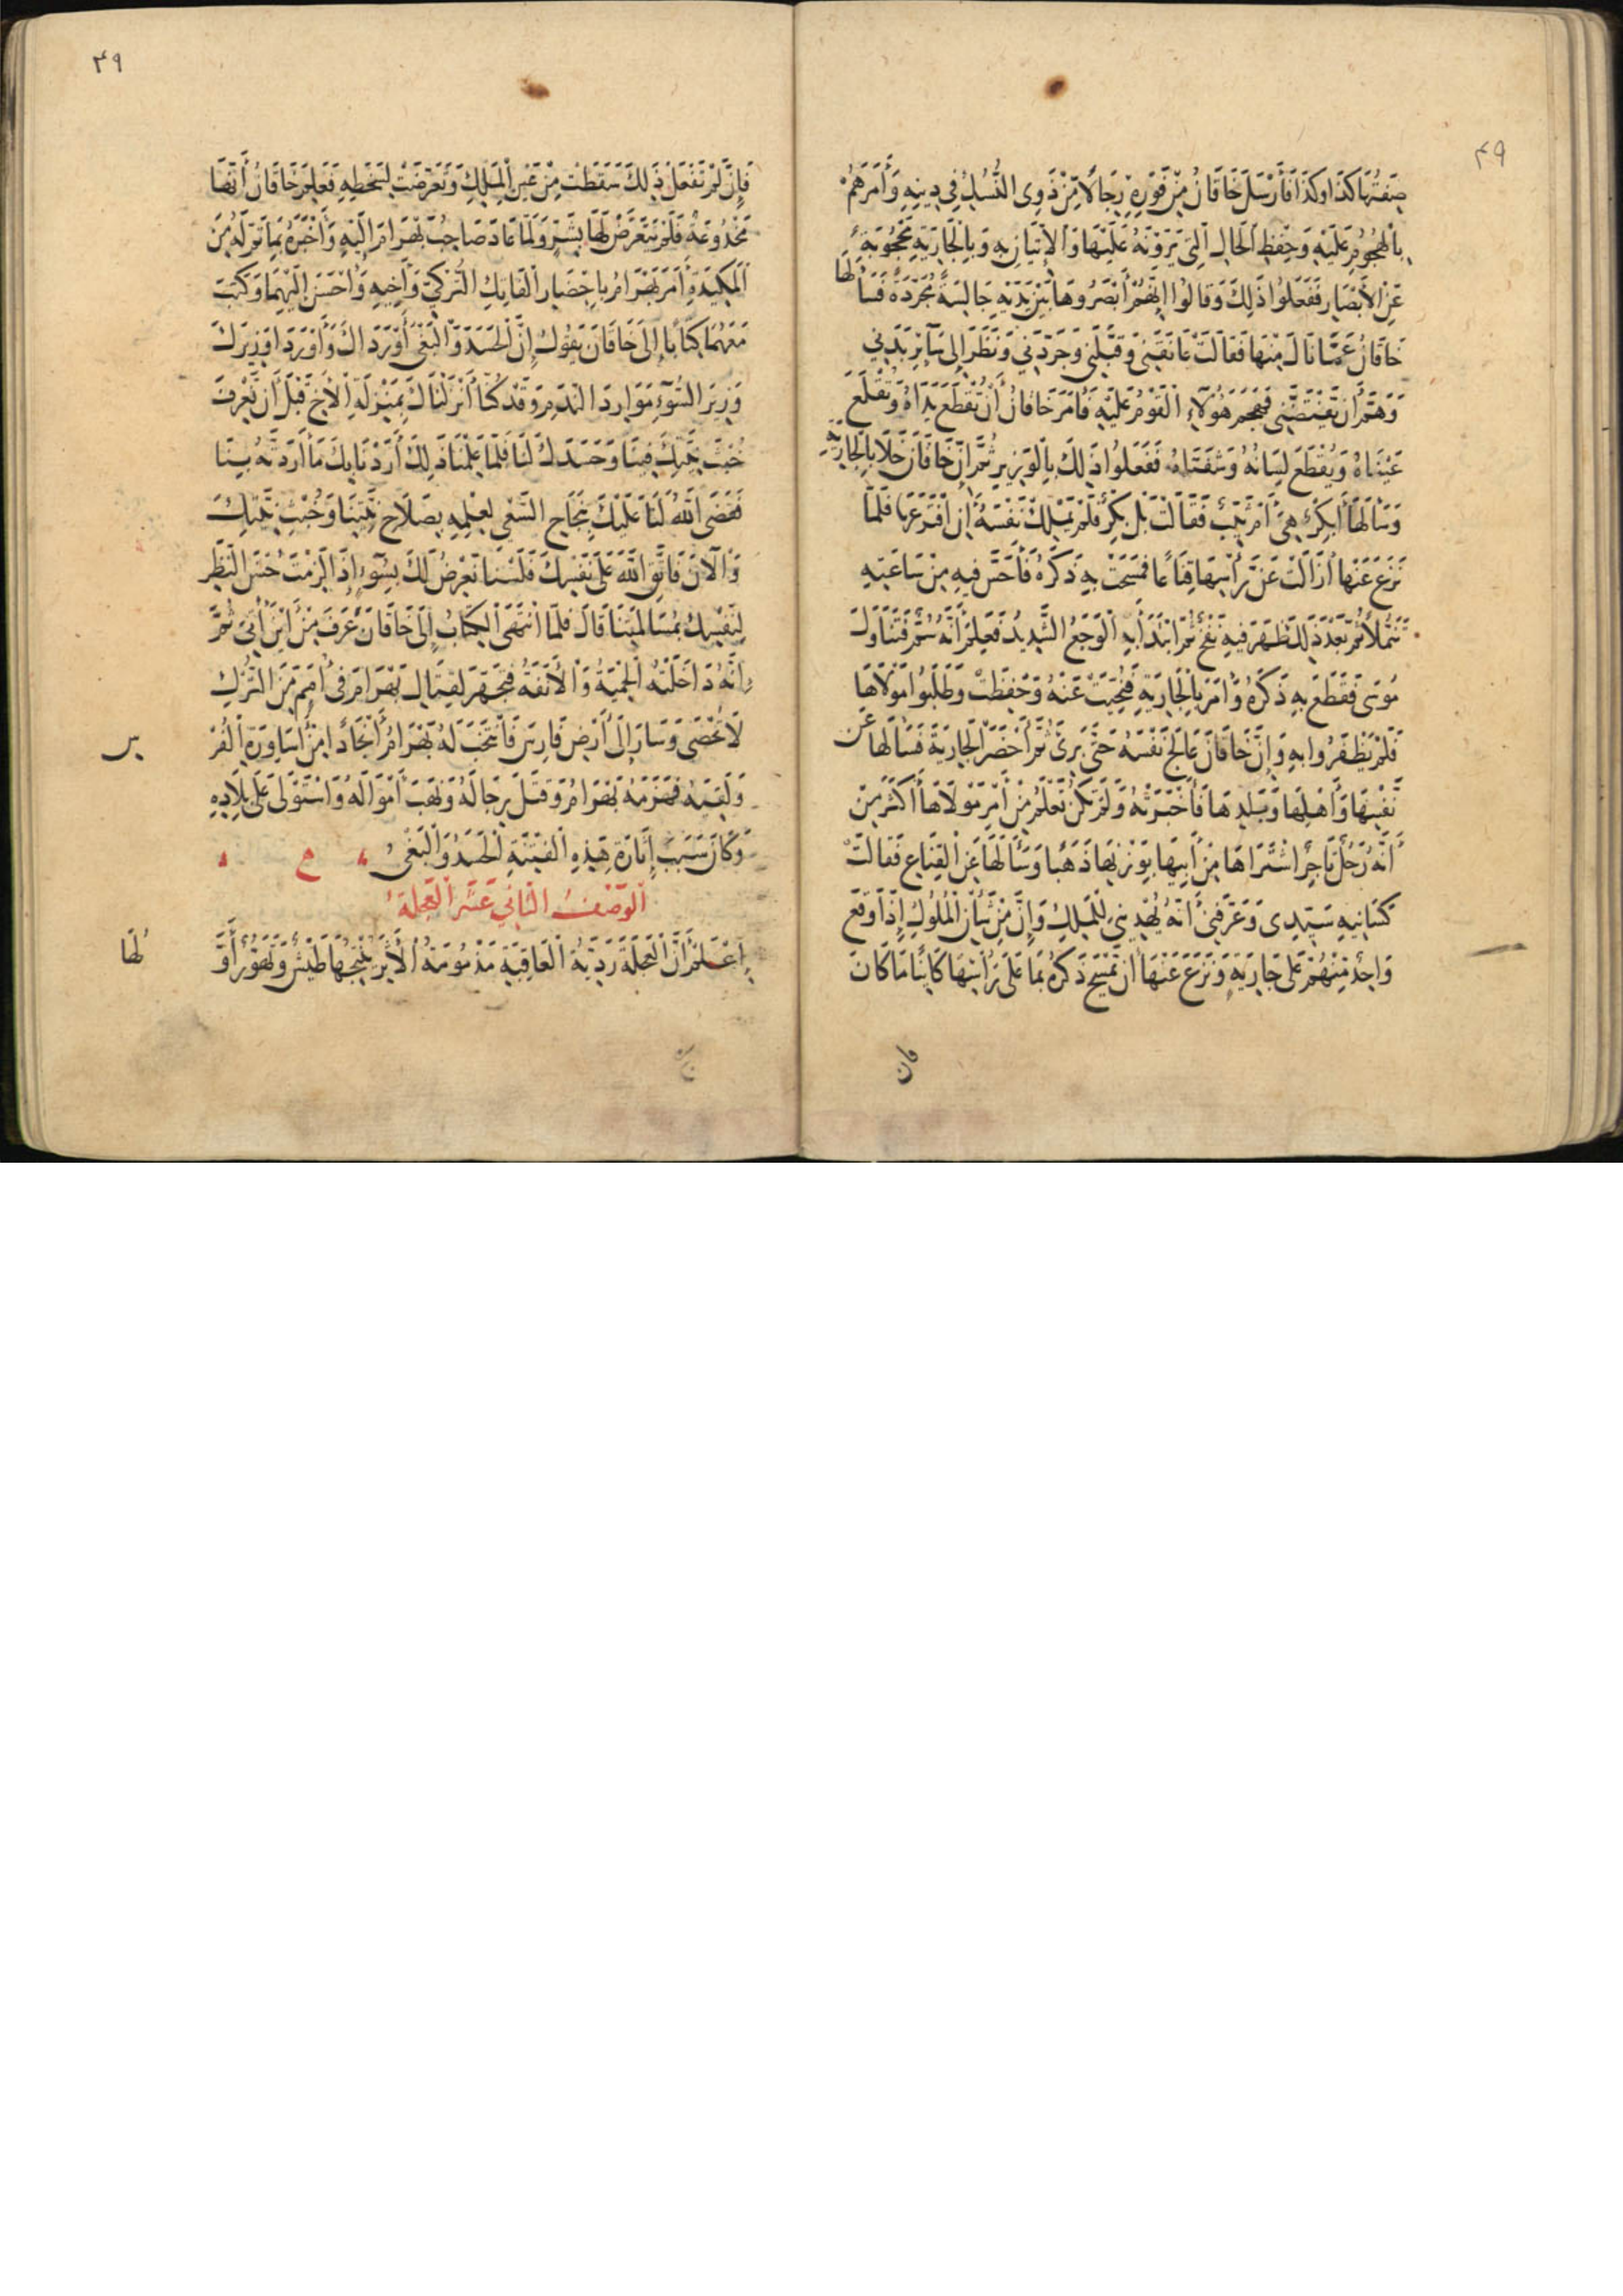 ٤٩
صِفَتُهَا كَذَا وكَذَا فَأَرْسَلَ خَاقَانُ مِنْ فَوْرِهِ رِجَالًا مِنْ ذَوِى النُّسُكِ فِي دِينِهِ وَأَمَرَهُمْ
بِالْهُجُومِ عَلَيْهِ وَحِفْظِ الْحَالِ الَّتِى يَرَوْنَهُ عَلَيْهَا وَالْإِتْيَانِ بِهِ وَبِالْجَارِيَةِ مَحْجُوبَةً
عَنِ الْأَبْصَارِ فَفَعَلُوا ذَلِكَ وَقَالُوا إِنَّهُمْ أَبْصَرُوهَا بَيْنَ يَدَيْهِ جَالِسَةً مُجَرَّدَةً فَسَأَلَهَا
خَاقَانُ عَمَّا نَالَ مِنْهَا فَقَالَتْ عَانَقَنِى وَقَبَّلَنِى وَجَرَّدَنِى وَنَظَرَ إِلَى سَائِرِ بَدَنِي
وَهَمَّ أَنْ يَفْتَضَّنِى فَهَجَمَ هَؤُلَاءِ الْقَوْمُ عَلَيْهِ فَأَمَرَ خَاقَانُ أَنْ تُقْطَعَ يَدَاهُ وَتُقْلَعَ
عَيْنَاهُ وَيُقْطَعَ لِسَانُهُ وَشَفَتَاهُ فَفَعَلُوا ذَلِكَ بِالْوَزِيرِ ثُمَّ إِنَّ خَاقَانَ خَلَا بِالْجَارِيَةِ
وَسَأَلَهَا أَبِكْرٌ هِىَ أَمْ ثَيِّبٌ فَقَالَتْ بَلْ بِكْرٌ فَلَمْ يَمْلِكْ نَفْسَهُ أَنِ افْتَرَعَهَا فَلَمَّا
نَزَعَ عَنْهَا أَزَالَتْ عَنْ رَأْسِهَا قِنَاعًا فَمَسَحَتْ بِهِ ذَكَرَهُ فَأَحَسَّ فِيهِ مِنْ سَاعَتِهِ
تَنَمُّلًا ثُمَّ بَعْدَ ذَلِكَ ظَهَرَ فِيهِ نَفْخٌ ثُمَّ ابْتَدَأَ بِهِ الْوَجَعُ الشَّدِيدُ فَعَلِمَ أَنَّهُ سُمَّ فَتَنَاوَلَ
مُوسَى فَقَطَعَ بِهِ ذَكَرَهُ وَأَمَرَ بِالْجَارِيَةِ فَنُحِّيَتْ عَنْهُ وَحُفِظَتْ وَطَلَبُوا مَوْلَاهَا
فَلَمْ يَظْفَرُوا بِهِ وَإِنَّ خَاقَانَ عَالَجَ نَفْسَهُ حَتَّى بَرِئَ ثُمَّ أَحْضَرَ الْجَارِيَةَ فَسَأَلَهَا عَنْ
نَفْسِهَا وَأَهْلِهَا وَبَلَدِهَا فَأَخْبَرَتْهُ وَلَمْ تَكُنْ تَعْلَمُ مِنْ أَمْرِ مَوْلَاهَا أَكْثَرَ مِنْ
أَنَّهُ رَجُلٌ تَاجِرٌ اشْتَرَاهَا مِنْ أَبِيهَا بِوَزْنِهَا ذَهَبًا وَسَأَلَهَا عَنِ الْقِنَاعِ فَقَالَتْ
كَسَانِيهِ سَيِّدِى وَعَرَّفَنِى أَنَّهُ يُهْدِينِى لِلْمَلِكِ وَإِنَّ مِنْ شَأْنِ الْمُلُوكِ إِذَا وَقَعَ
وَاحِدٌ مِنْهُمْ عَلَى جَارِيَةٍ وَنَزَعَ عَنْهَا أَنْ تَمْسَحَ ذَكَرَهُ بِمَا عَلَى رَأْسِهَا كَائِنًا مَا كَانَ
فان
٤٩
فَإِنْ لَمْ تَفْعَلْ ذَلِكَ سَقَطَتْ مِنْ عَيْنِ الْمَلِكِ وَتَعَرَّضَتْ لِسَخَطِهِ فَعَلِمَ خَاقَانُ أَنَّهَا
مَخْدُوعَةٌ فَلَمْ يَتَعَرَّضْ لَهَا بِشَرٍّ وَلَمَّا عَادَ صَاحِبُ بَهْرَامَ إِلَيْهِ وَأَخْبَرَهُ بِمَا تَمَّ لَهُ مِنَ
الْمَكِيدَةِ أَمَرَ بَهْرَامُ بِإِحْضَارِ الْفَاتِكِ التُّرْكِيِّ وَأَخِيهِ وَأَحْسَنَ إِلَيْهِمَا وَكَتَبَ
مَعَهُمَا كِتَابًا إِلَى خَاقَانَ يَقُولُ إِنَّ الْحَسَدَ وَالْبَغْىَ أَوْرَدَاكَ وَأَوْرَدَا وَزِيرَكَ
وَزِيرَ السُّوْءِ مَوَارِدَ النَّدَمِ وَقَدْ كُنَّا أَنْزَلْنَاكَ بِمَنْزِلَةِ الْأَخِ قَبْلَ أَنْ نَعْرِفَ
خُبْثَ نِيَّتِكَ فِينَا وَحَسَدَكَ لَنَا فَلَمَّا عَلِمْنَا ذَلِكَ أَرَدْنَا بِكَ مَا أَرَدْتَهُ بِنَا
فَقَضَى اللَّهُ لَنَا عَلَيْكَ بِنَجَاحِ السَّعْىِ لِعِلْمِهِ بِصَلَاحِ نِيَّتِنَا وَخُبْثِ نِيَّتِكَ
وَالْآنَ فَاتَّقِ اللَّهَ عَلَى نَفْسِكَ فَلَسْنَا نَعْرِضُ لَكَ بِسُوءٍ إِذَا الْزَمْتَ حُسْنَ النَّظَرِ
لِنَفْسِكَ بِمُسَالَمَتِنَا قَالَ فَلَمَّا انْتَهَى الْكِتَابُ إِلَى خَاقَانَ عَرَفَ مِنْ أَيْنَ أُتِىَ ثُمَّ
إِنَّهُ دَاخَلَتْهُ الْحَمِيَّةُ وَالْأَنَفَةُ فَتَجَهَّزَ لِقِتَالِ بَهْرَامَ فِى أُمَمٍ مِنَ التُّرْكِ
لَا تُحْصَى وَسَارَ إِلَى أَرْضِ فَارِسَ فَانْتَخَبَ لَهُ بَهْرَامُ أَنْجَادًا مِنْ أَسَاوِرَةِ الْفُرْ
س
وَلَقِيَهُ فَهَزَمَهُ بَهْرَامُ وَقَتَلَ رِجَالَهُ وَنَهَبَ أَمْوَالَهُ وَاسْتَوْلَى عَلَى بِلَادِهِ
وَكَانَ سَبَبُ إِثَارَةِ هَذِهِ الْفِتْنَةِ الْحَسَدُ وَالْبَغْىُ
الْوَصْفُ الثَّانِي عَشَرَ الْعَجَلَةُ
اِعْلَمْ أَنَّ الْعَجَلَةَ رَدِيَّةُ الْعَاقِبَةِ مَذْمُومَةُ الْأَثَرِ يُنْتِجُهَا طَيْشٌ وَتَهَوُّرٌ أَوَّ
لُهَا